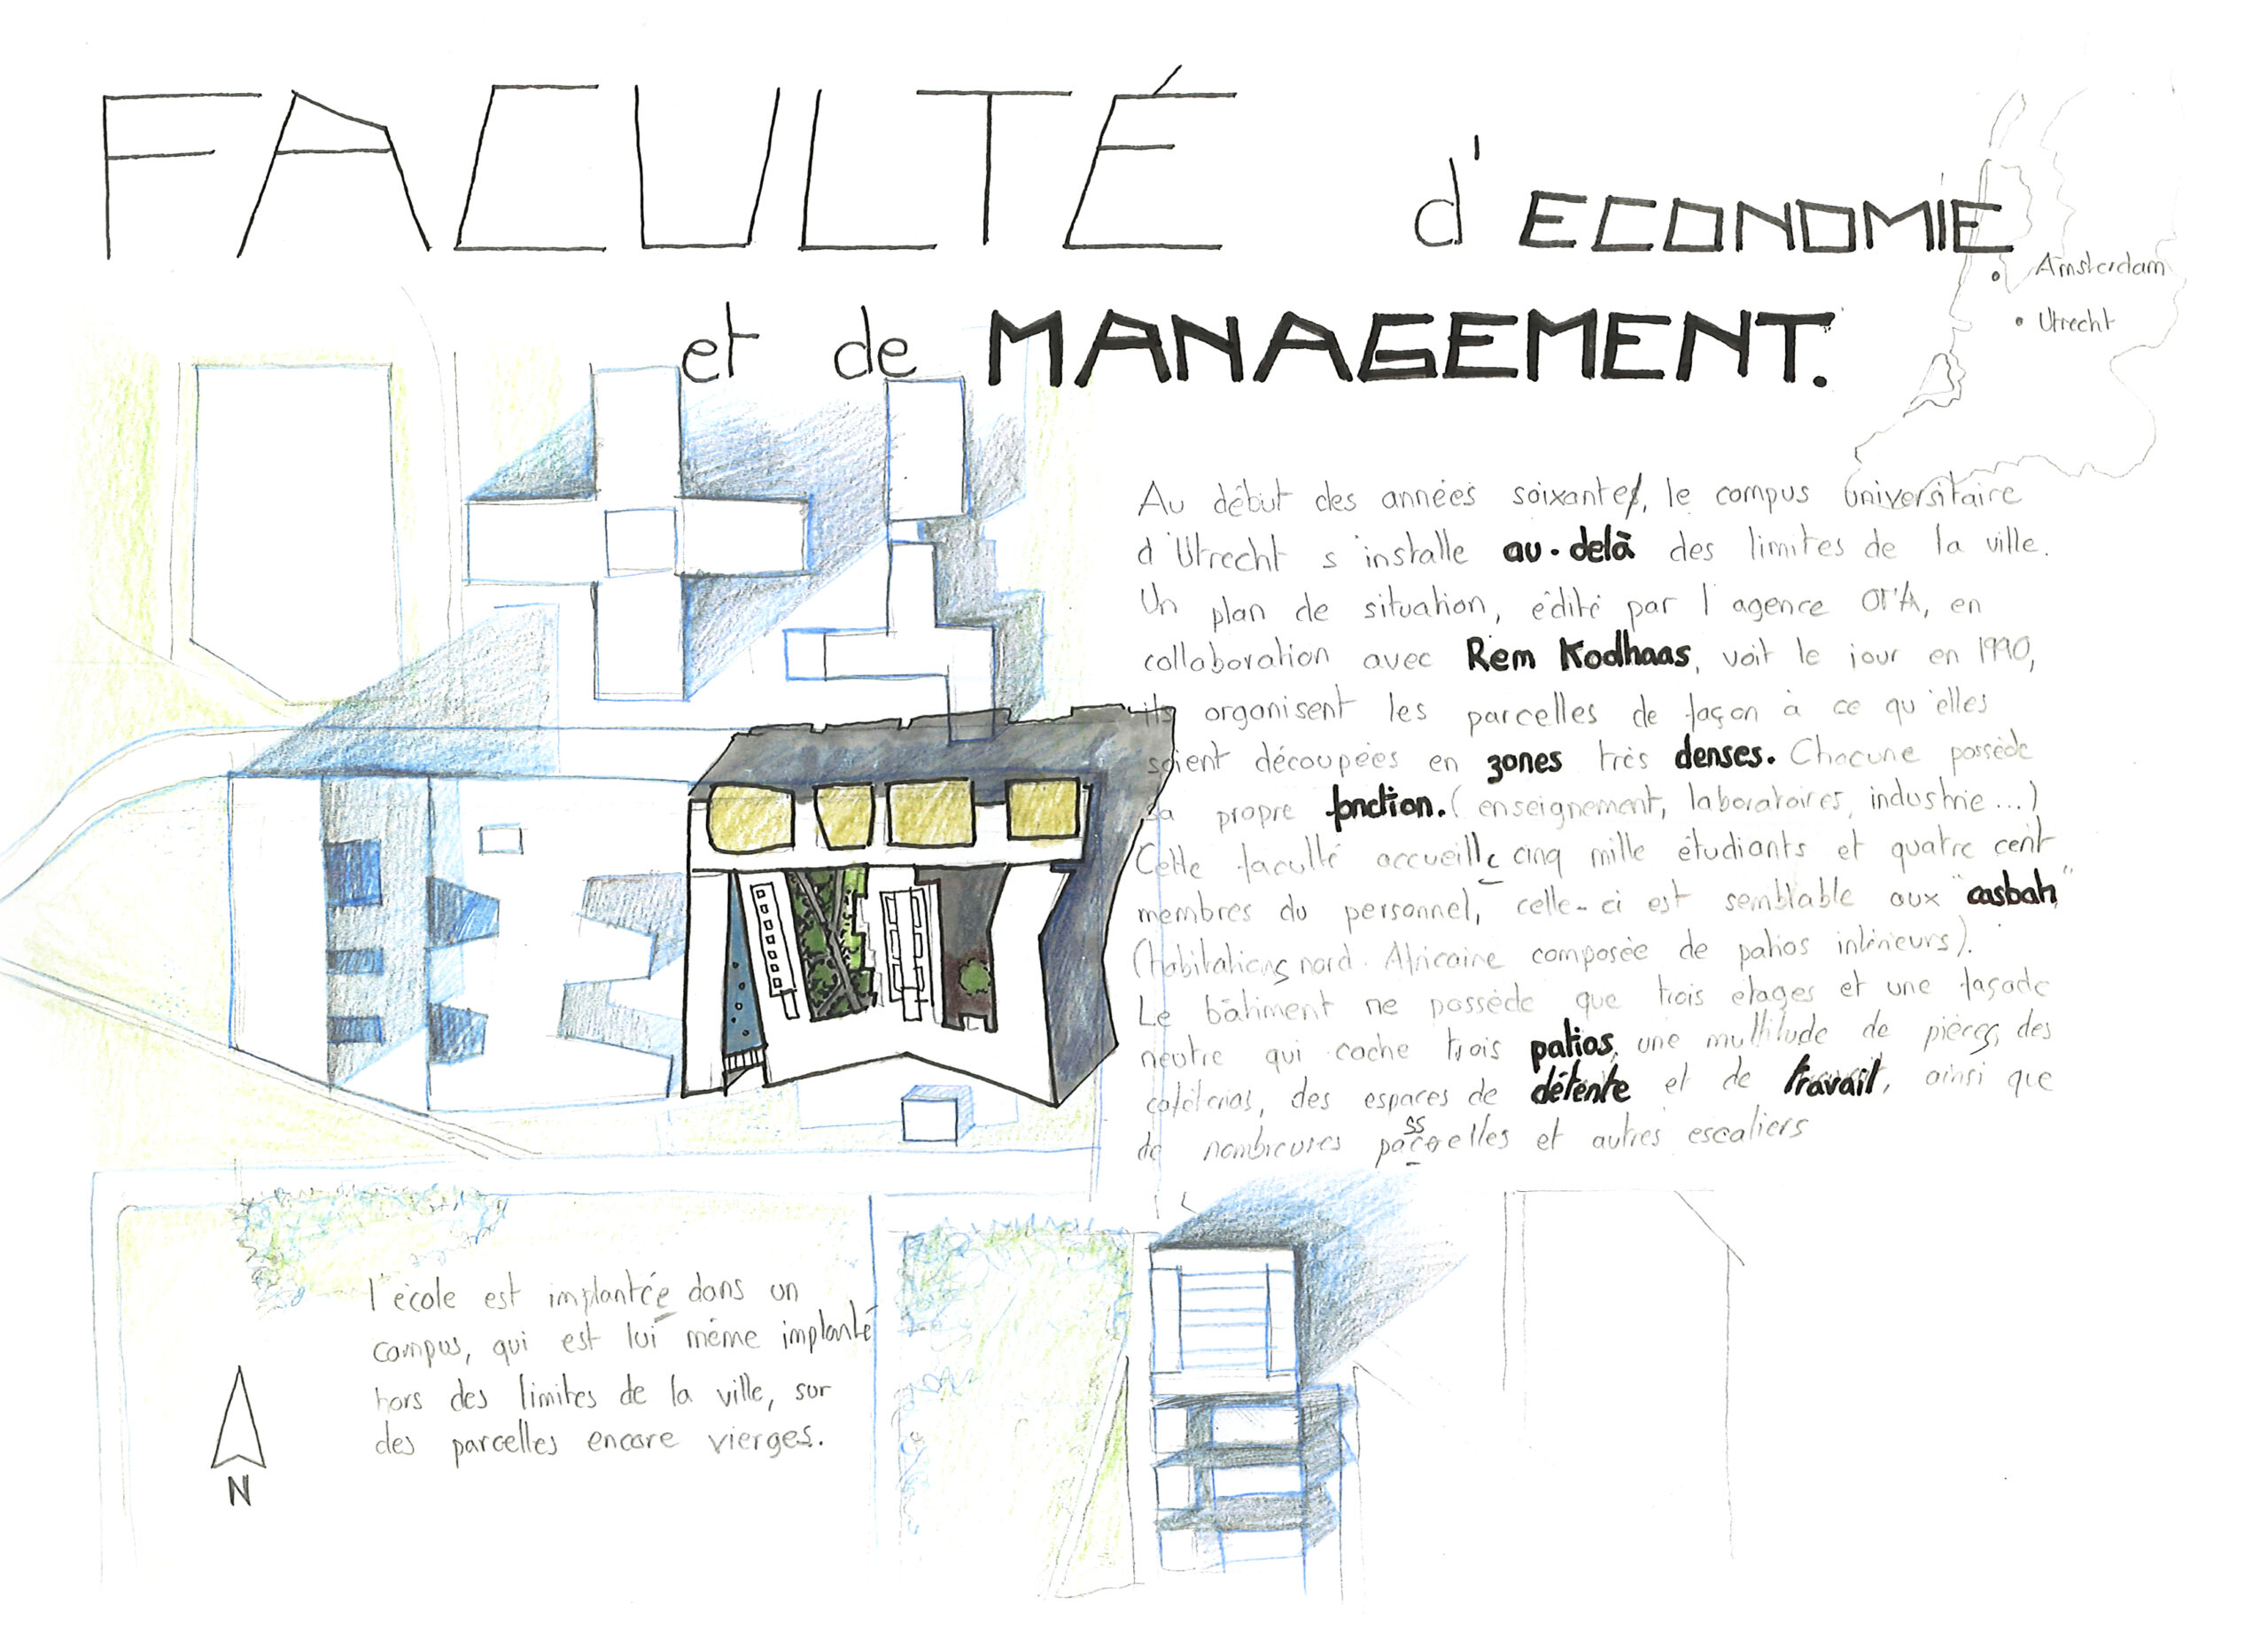 FACULTÉ
d'ECONOMIE
et de MANAGEMENT.
Amsterdam
Utrecht
Au début des années soixante, le campus universitaire
d'Utrecht s'installe au-delà des limites de la ville.
Un plan de situation, édité par l'agence OMA, en
collaboration avec Rem Koolhaas, voit le jour en 1990,
ils organisent les parcelles de façon à ce qu'elles
soient découpées en zones très denses. Chacune possède
sa propre fonction. (enseignement, laboratoires, industrie...)
Cette faculté accueille cinq mille étudiants et quatre cent
membres du personnel, celle-ci est semblable aux "casbah"
(Habitations nord-Africaine composée de patios intérieurs).
Le bâtiment ne possède que trois etages et une façade
neutre qui cache trois patios, une multitude de pièces, des
cafétérias, des espaces de détente et de travail, ainsi que
de nombreuses passerelles et autres escaliers
l'école est implantée dans un
campus, qui est lui même implanté
hors des limites de la ville, sur
des parcelles encore vierges.
N